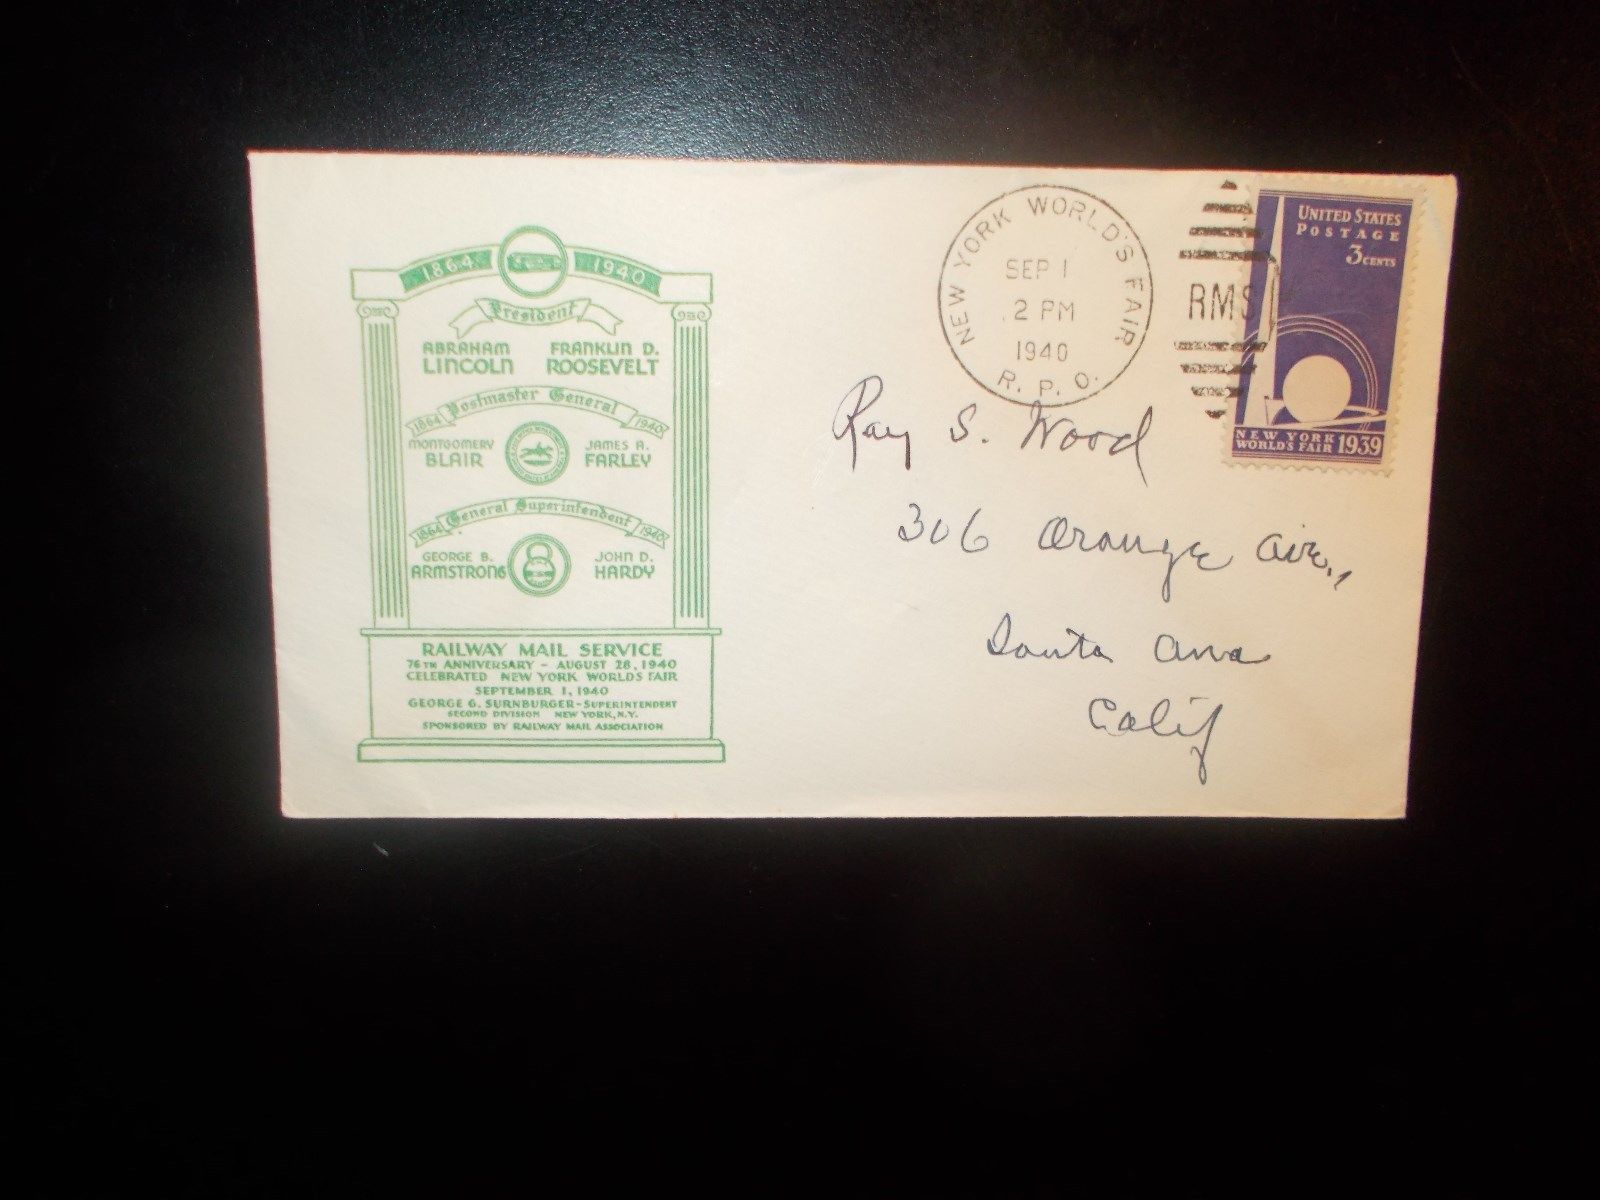 1864 1940
President
ABRAHAM LINCOLN
FRANKLIN D. ROOSEVELT
1864 Postmaster General 1940
MONTGOMERY BLAIR
JAMES A. FARLEY
1864 General Superintendent 1940
GEORGE B. ARMSTRONG
JOHN D. HARDY
RAILWAY MAIL SERVICE
76TH ANNIVERSARY - AUGUST 28, 1940
CELEBRATED NEW YORK WORLDS FAIR
SEPTEMBER 1, 1940
GEORGE G. SURNBURGER - SUPERINTENDENT
SECOND DIVISION NEW YORK, N.Y.
SPONSORED BY RAILWAY MAIL ASSOCIATION
NEW YORK WORLD'S FAIR
SEP 1
2 PM
1940
R. P. O.
RMS
UNITED STATES
POSTAGE
3 CENTS
NEW YORK
WORLD'S FAIR 1939
Ray S. Wood
306 Orange Ave.,
Santa Ana
Calif